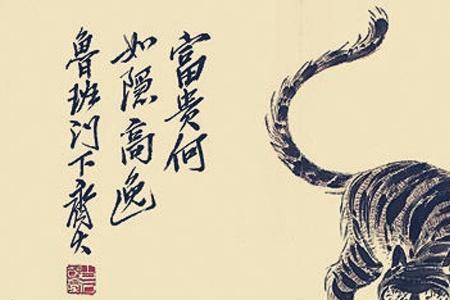 富贵何
如隐高逸
魯班门下齊大